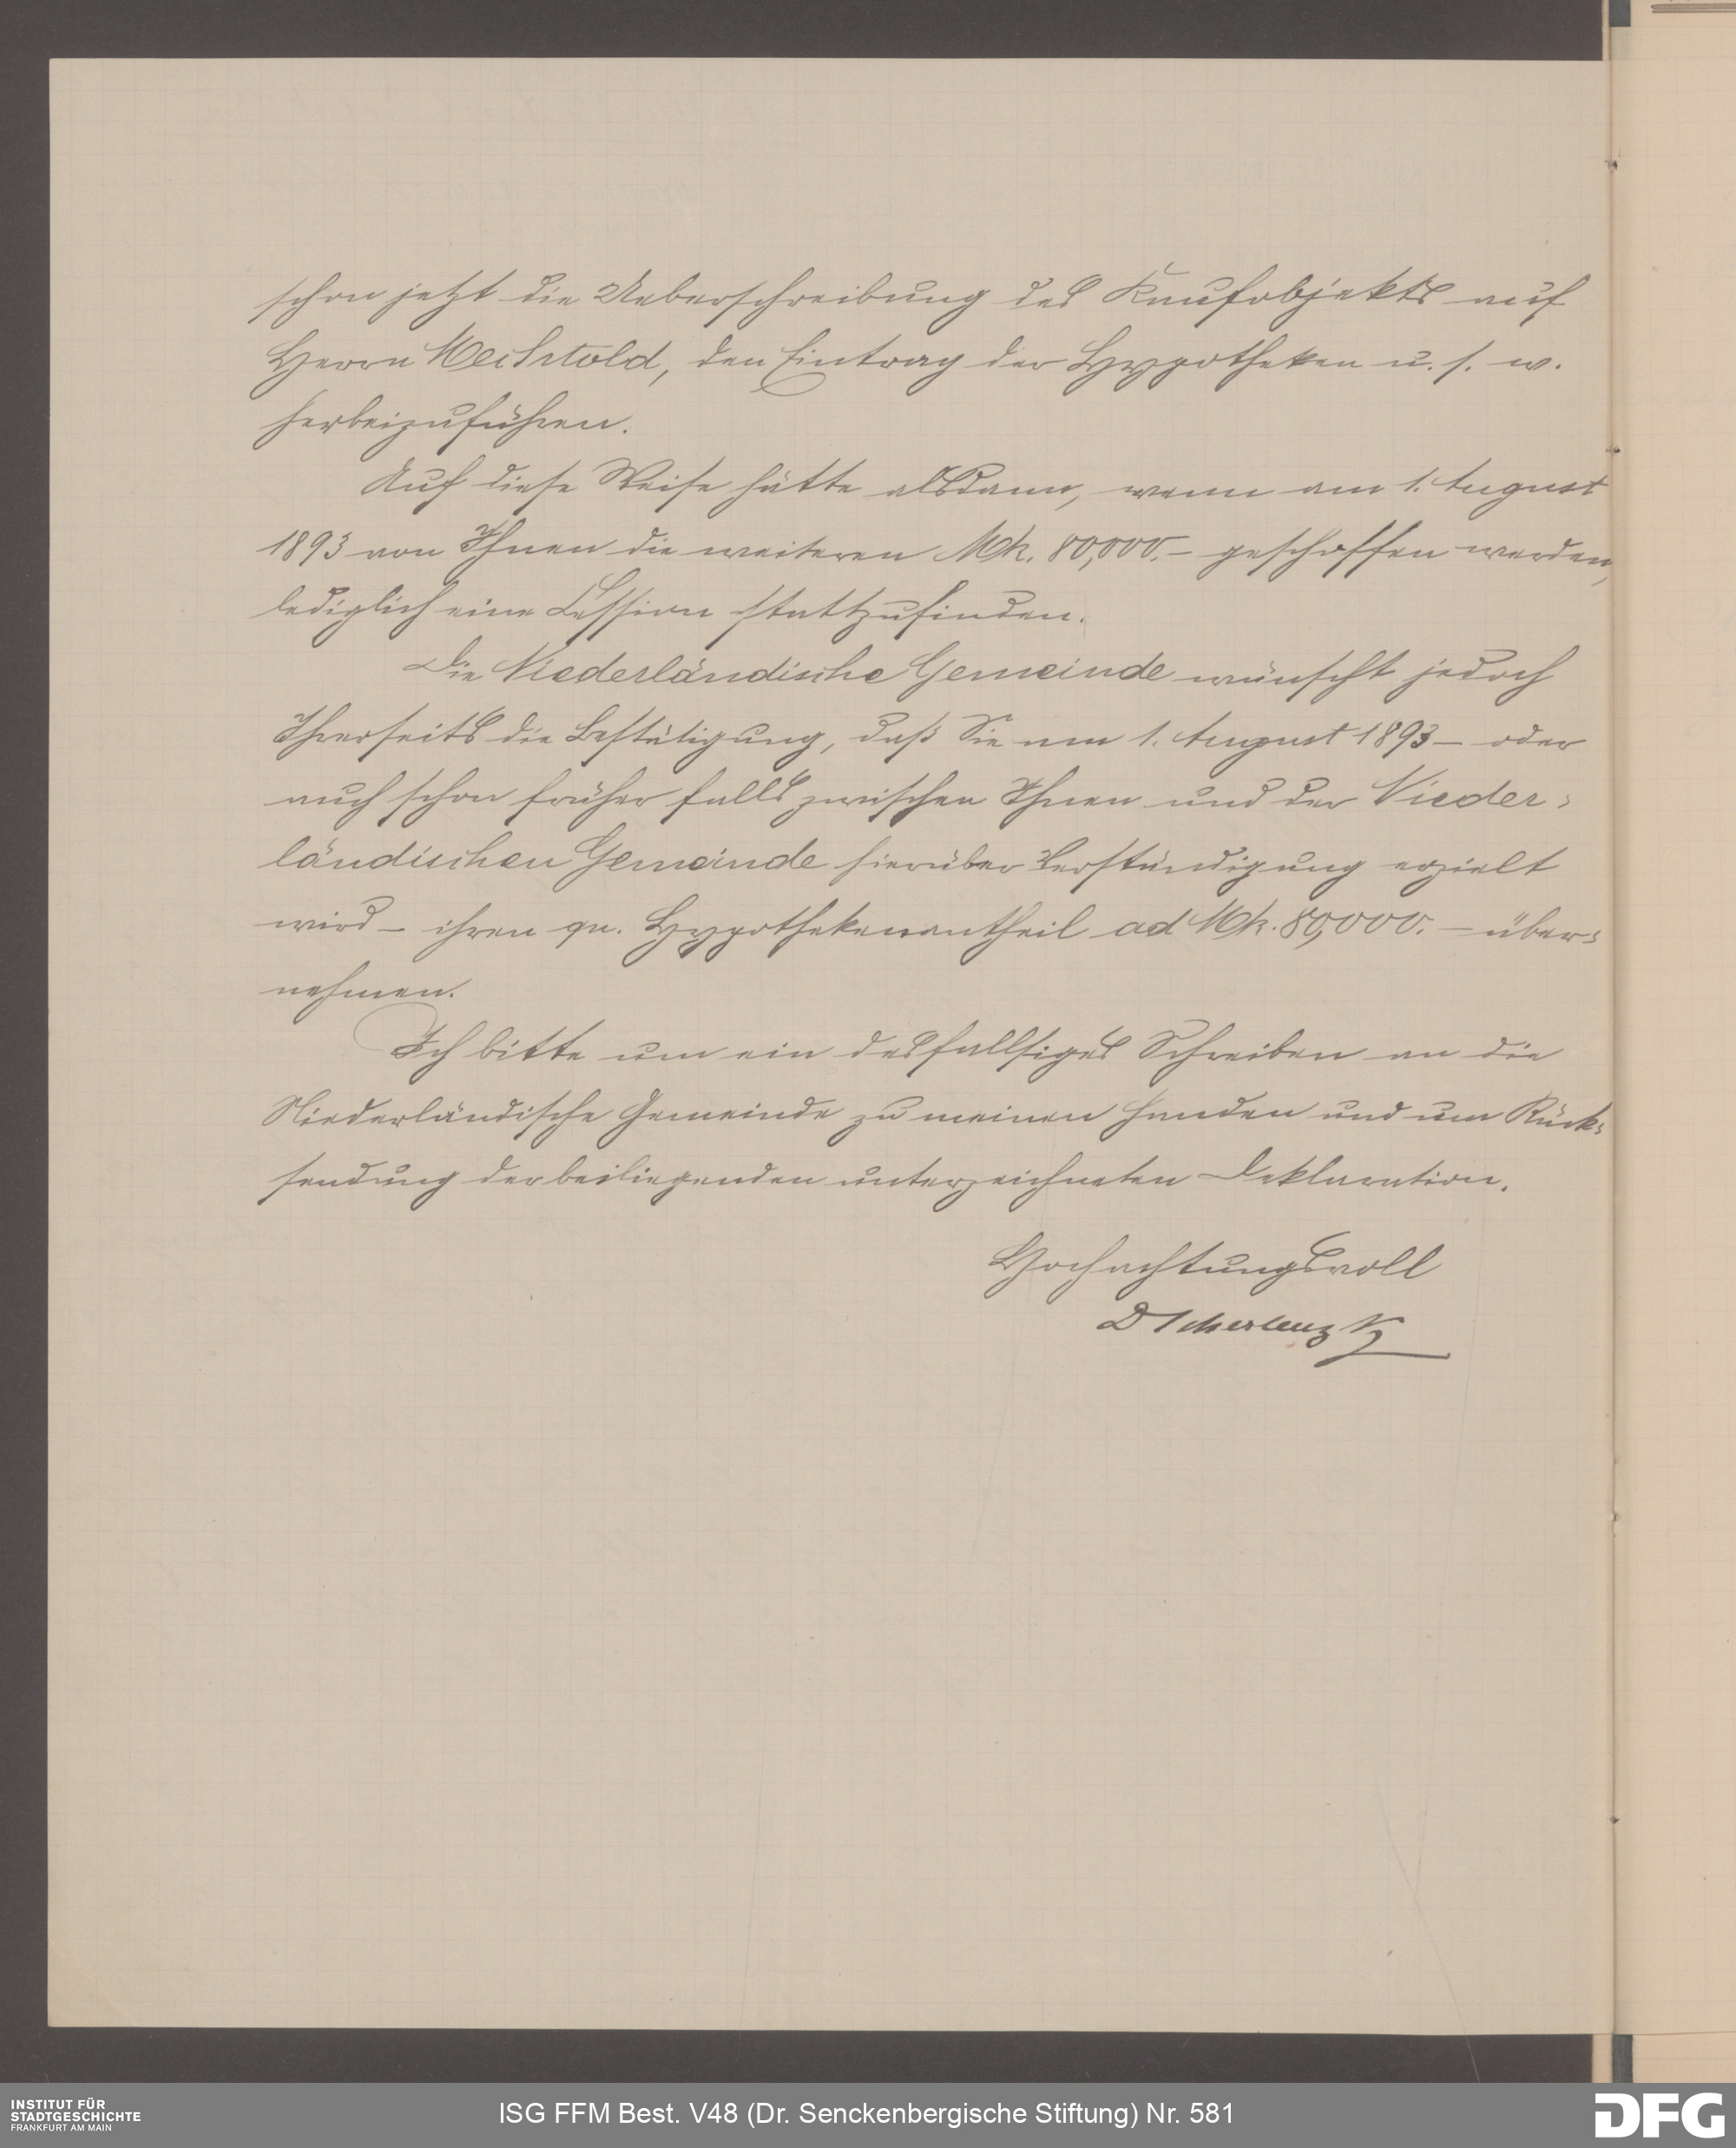 schon jetzt die Ueberschreibung des Kaufobjekts auf
Herrn Mechtold, den Eintrag der Hypotheken u. s. w.
herbeizuführen.
Auf diese Weise hätte alsdann, wenn am 1. August
1893 von Ihnen die weiteren Mk. 80,000.– geschossen werden,
lediglich eine Cession stattzufinden.
Die Niederländische Gemeinde wünscht jedoch
Ihrerseits die Bestätigung, daß Sie am 1. August 1893 – oder
auch schon früher falls zwischen Ihnen und der Nieder-
ländischen Gemeinde hierüber Verständigung erzielt
wird – ihren qu. Hypothekenantheil ad Mk. 80,000. – über-
nehmen.
Ich bitte um ein desfallsiges Schreiben an die
Niederländische Gemeinde zu meinen Handen und um Rück-
sendung der beiliegenden unterzeichneten Deklaration.
Hochachtungsvoll
INSTITUT FÜR
STADTGESCHICHTE
FRANKFURT AM MAIN
ISG FFM Best. V48 (Dr. Senckenbergische Stiftung) Nr. 581
DFG